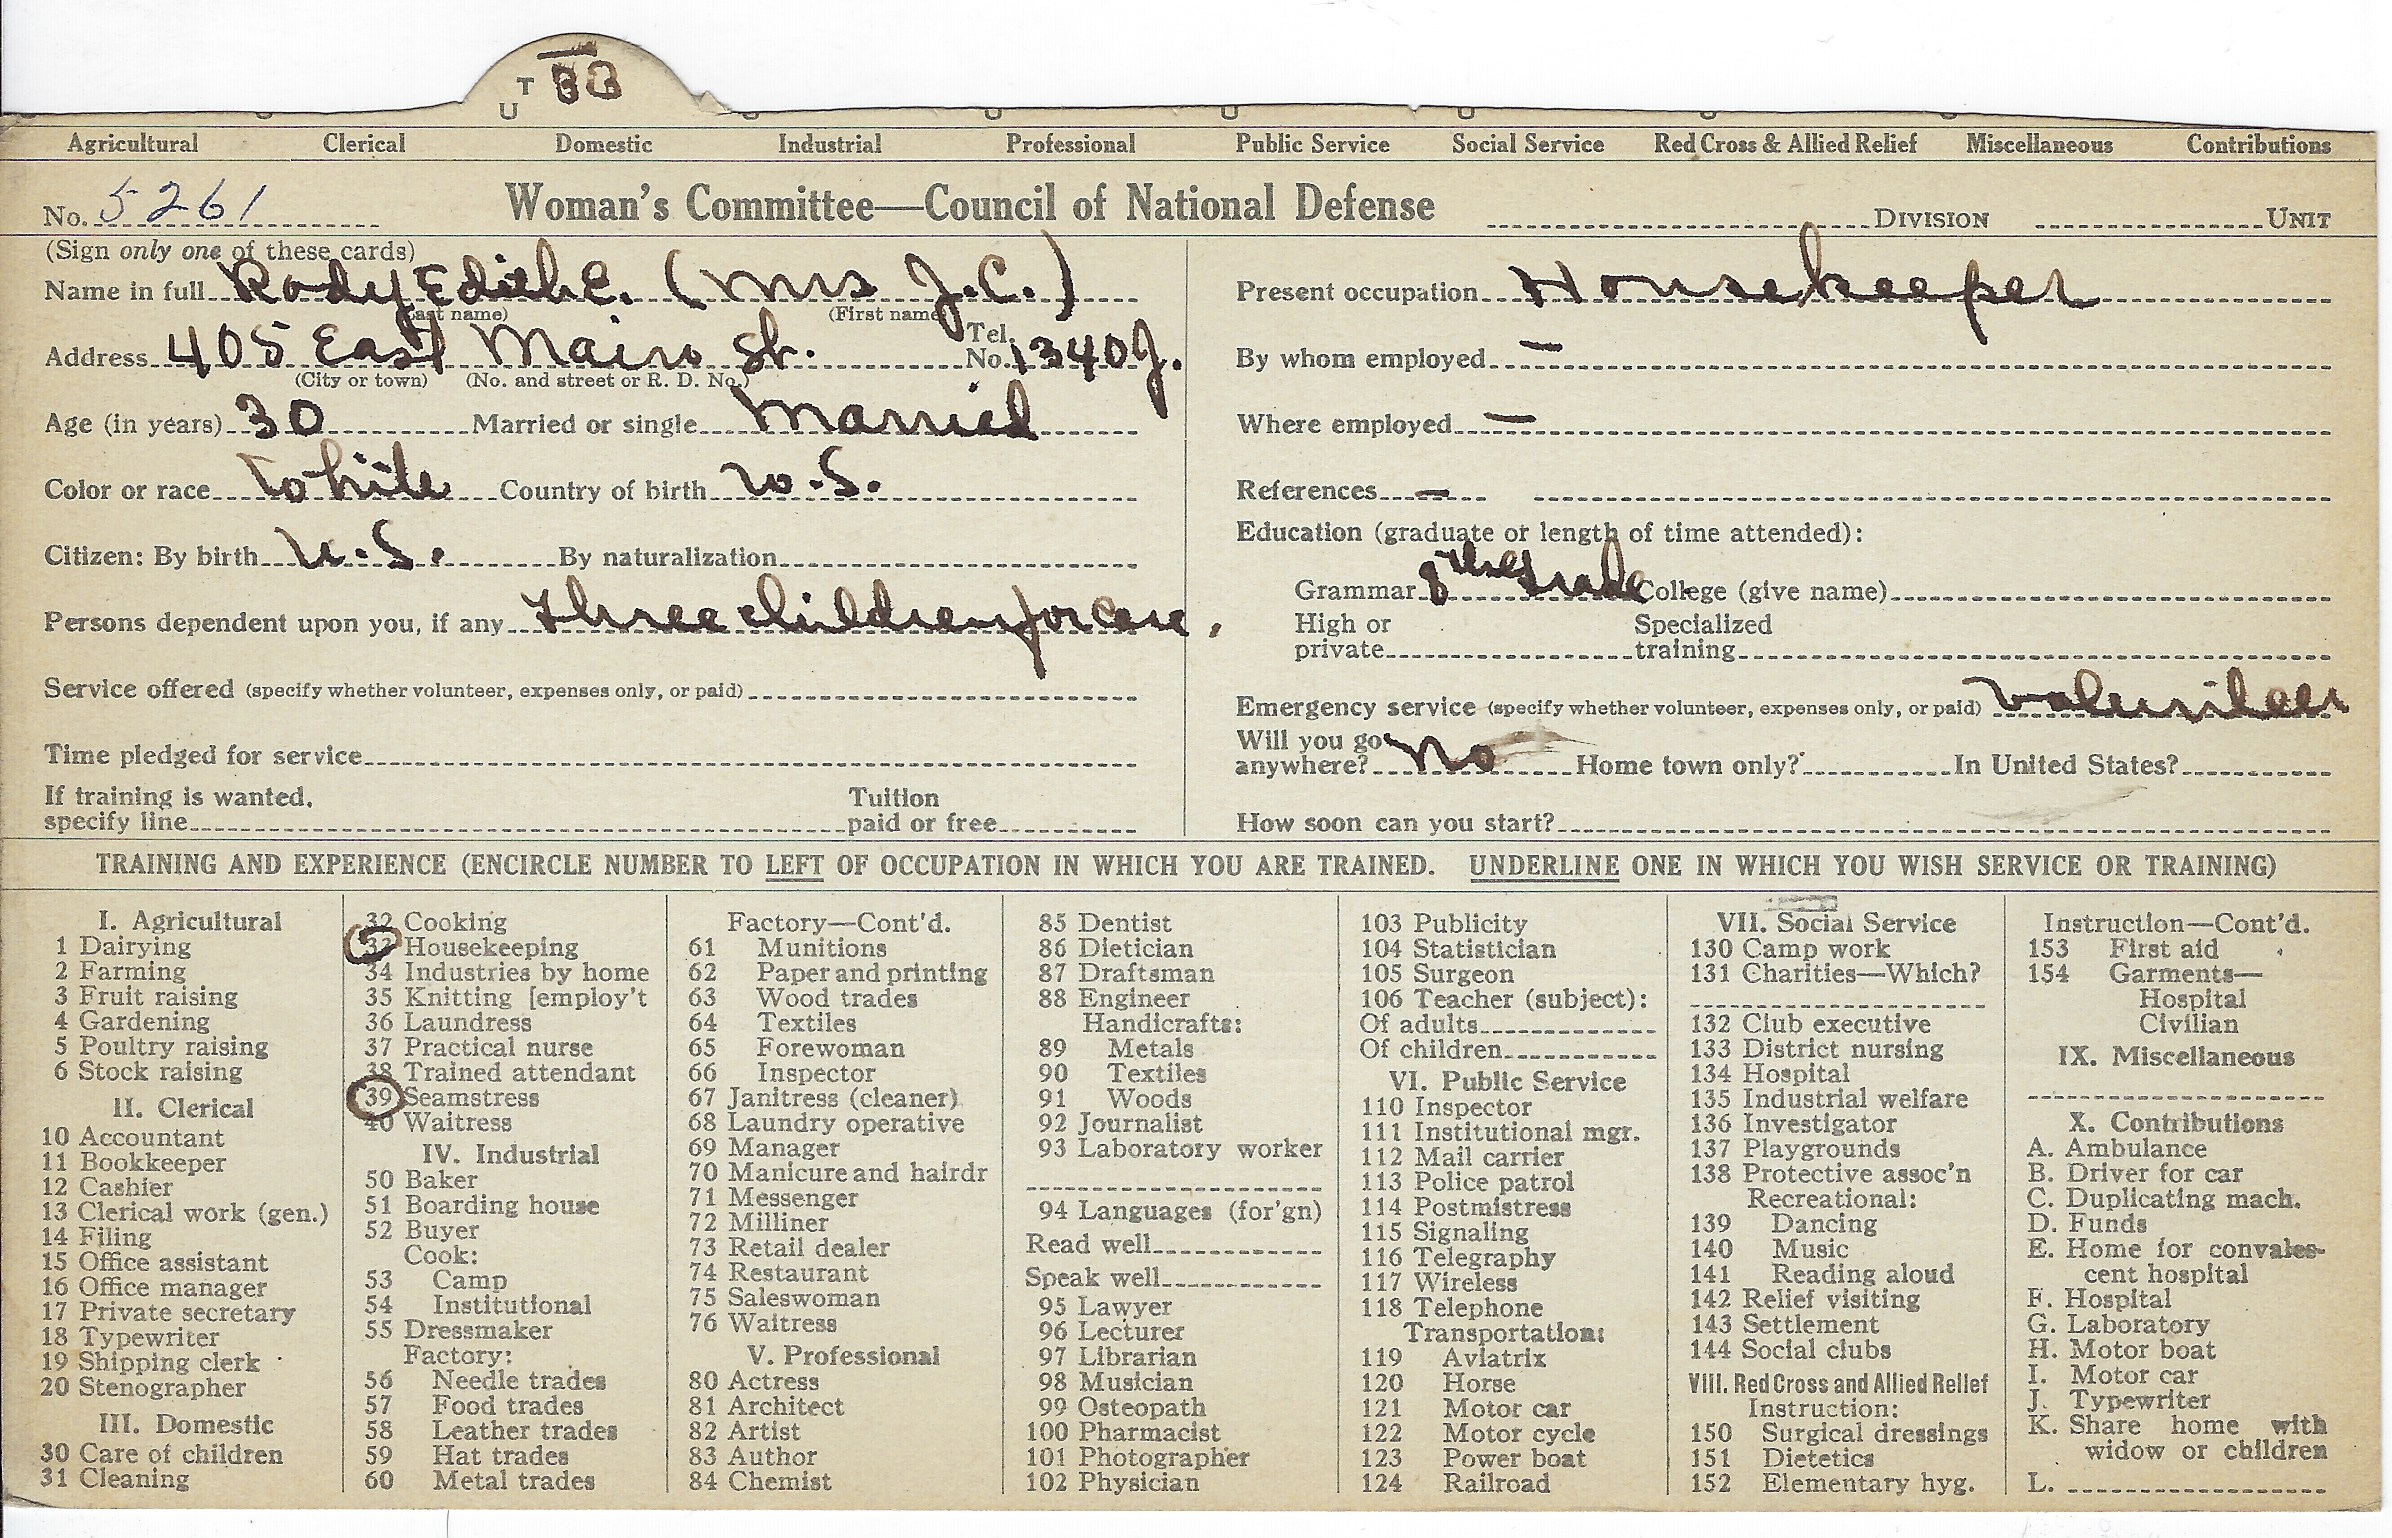 T 33
U
Agricultural Clerical Domestic Industrial Professional Public Service Social Service Red Cross & Allied Relief Miscellaneous Contributions
No. 5261 Woman's Committee—Council of National Defense DIVISION UNIT
(Sign only one of these cards)
Name in full Rody Edith E. (Mrs J.C.)
(Last name) (First name)
Address 405 East Main St. Tel. No. 1340J.
(City or town) (No. and street or R. D. No.)
Age (in years) 30 Married or single Married
Color or race White Country of birth U.S.
Citizen: By birth U.S. By naturalization
Persons dependent upon you, if any three children for care,
Service offered (specify whether volunteer, expenses only, or paid)
Time pledged for service
If training is wanted,
specify line Tuition paid or free
Present occupation Housekeeper
By whom employed —
Where employed —
References —
Education (graduate or length of time attended):
Grammar 8th Grade College (give name)
High or private Specialized training
Emergency service (specify whether volunteer, expenses only, or paid) volunteer
Will you go anywhere? No Home town only? In United States?
How soon can you start?
TRAINING AND EXPERIENCE (ENCIRCLE NUMBER TO LEFT OF OCCUPATION IN WHICH YOU ARE TRAINED. UNDERLINE ONE IN WHICH YOU WISH SERVICE OR TRAINING)
I. Agricultural
1 Dairying
2 Farming
3 Fruit raising
4 Gardening
5 Poultry raising
6 Stock raising
II. Clerical
10 Accountant
11 Bookkeeper
12 Cashier
13 Clerical work (gen.)
14 Filing
15 Office assistant
16 Office manager
17 Private secretary
18 Typewriter
19 Shipping clerk
20 Stenographer
III. Domestic
30 Care of children
31 Cleaning
32 Cooking
33 Housekeeping
34 Industries by home
35 Knitting [employ't
36 Laundress
37 Practical nurse
38 Trained attendant
39 Seamstress
40 Waitress
IV. Industrial
50 Baker
51 Boarding house
52 Buyer
Cook:
53 Camp
54 Institutional
55 Dressmaker
Factory:
56 Needle trades
57 Food trades
58 Leather trades
59 Hat trades
60 Metal trades
Factory—Cont'd.
61 Munitions
62 Paper and printing
63 Wood trades
64 Textiles
65 Forewoman
66 Inspector
67 Janitress (cleaner)
68 Laundry operative
69 Manager
70 Manicure and hairdr
71 Messenger
72 Milliner
73 Retail dealer
74 Restaurant
75 Saleswoman
76 Waitress
V. Professional
80 Actress
81 Architect
82 Artist
83 Author
84 Chemist
85 Dentist
86 Dietician
87 Draftsman
88 Engineer
Handicrafts:
89 Metals
90 Textiles
91 Woods
92 Journalist
93 Laboratory worker
94 Languages (for'gn)
Read well
Speak well
95 Lawyer
96 Lecturer
97 Librarian
98 Musician
99 Osteopath
100 Pharmacist
101 Photographer
102 Physician
103 Publicity
104 Statistician
105 Surgeon
106 Teacher (subject):
Of adults
Of children
VI. Public Service
110 Inspector
111 Institutional mgr.
112 Mail carrier
113 Police patrol
114 Postmistress
115 Signaling
116 Telegraphy
117 Wireless
118 Telephone
Transportation:
119 Aviatrix
120 Horse
121 Motor car
122 Motor cycle
123 Power boat
124 Railroad
VII. Social Service
130 Camp work
131 Charities—Which?
132 Club executive
133 District nursing
134 Hospital
135 Industrial welfare
136 Investigator
137 Playgrounds
138 Protective assoc'n
Recreational:
139 Dancing
140 Music
141 Reading aloud
142 Relief visiting
143 Settlement
144 Social clubs
VIII. Red Cross and Allied Relief
Instruction:
150 Surgical dressings
151 Dietetics
152 Elementary hyg.
Instruction—Cont'd.
153 First aid
154 Garments—
Hospital
Civilian
IX. Miscellaneous
X. Contributions
A. Ambulance
B. Driver for car
C. Duplicating mach.
D. Funds
E. Home for convales-
cent hospital
F. Hospital
G. Laboratory
H. Motor boat
I. Motor car
J. Typewriter
K. Share home with
widow or children
L.